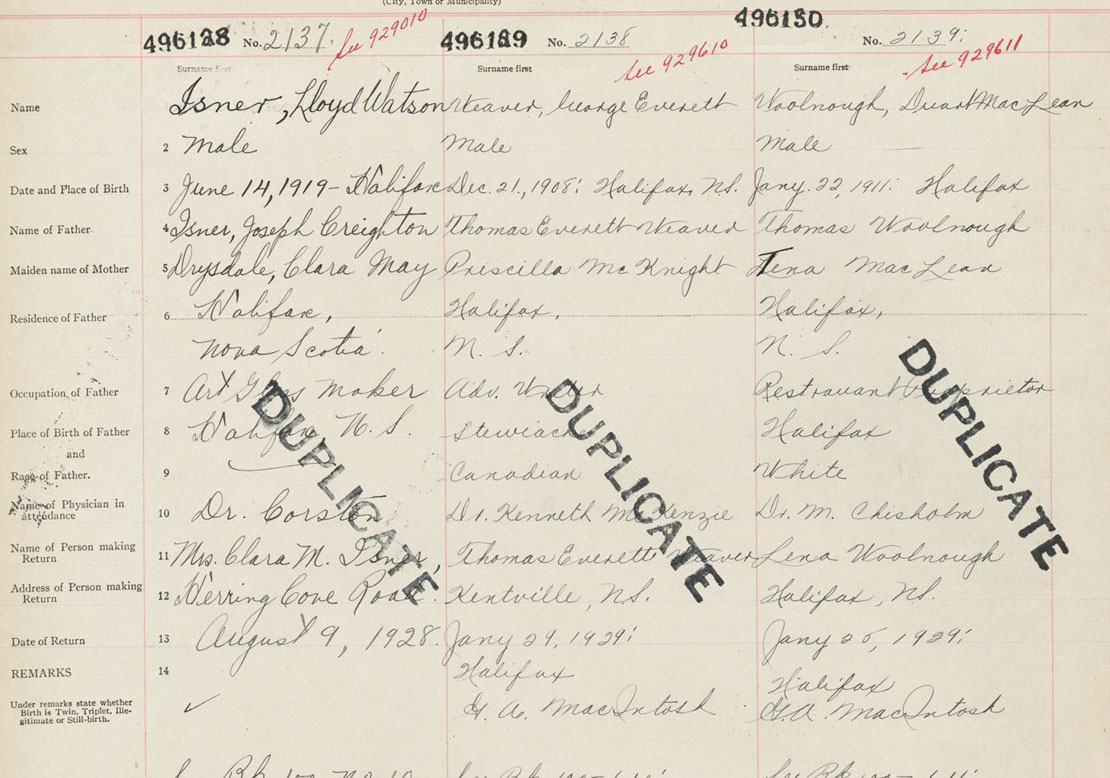 (City, Town or Municipality)
496128 No. 2137. See 929010 496129 No. 2138 See 929610 496130. No. 2139. See 929611
Surname first Surname first Surname first
Name Isner, Lloyd Watson Weaver, George Everett Woolnough, Duart MacLean
Sex 2 Male Male Male
Date and Place of Birth 3 June 14, 1919 - Halifax Dec. 21, 1908: Halifax, N.S. Jany. 22, 1911: Halifax
Name of Father 4 Isner, Joseph Creighton Thomas Everett Weaver Thomas Woolnough
Maiden name of Mother 5 Drysdale, Clara May Priscilla McKnight Lena MacLean
Residence of Father 6 Halifax, Halifax, Halifax,
Nova Scotia. N. S. N. S.
Occupation of Father 7 Art Glass Maker Adv. Writer Restraurant Proprietor
Place of Birth of Father 8 Halifax N. S. Stewiacke Halifax
and
Race of Father. 9 Canadian White
Name of Physician in attendance 10 Dr. Corston Dr. Kenneth McKenzie Dr. M. Chisholm
Name of Person making Return 11 Mrs. Clara M. Isner, Thomas Everett Weaver Lena Woolnough
Address of Person making Return 12 Herring Cove Road. Kentville, N.S. Halifax, N.S.
Date of Return 13 August 9, 1928. Jany 29, 1929: Jany 1929:
REMARKS 14 Halifax Halifax
Under remarks state whether Birth is Twin, Triplet, Illegitimate or Still-birth. ✓ G. A. MacIntosh G. A. MacIntosh
DUPLICATE DUPLICATE DUPLICATE